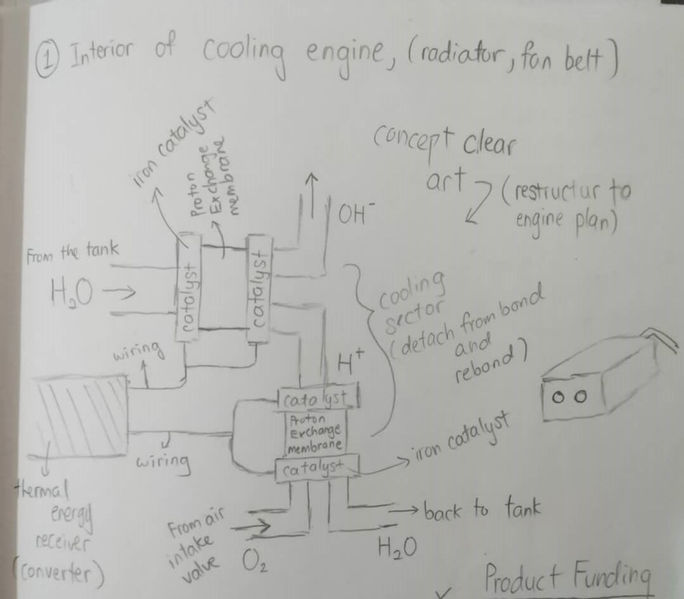 ① Interior of cooling engine, (radiator, fan belt)
concept clear
art
(restructur to
engine plan)
iron catalyst
Proton
Exchange
membrane
OH⁻
From the tank
H₂O
catalyst
catalyst
cooling
sector
(detach from bond
and
rebond)
wiring
H⁺
catalyst
Proton
Exchange
membrane
catalyst
iron catalyst
wiring
thermal
energy
receiver
(converter)
From air
intake
valve
O₂
back to tank
H₂O
Product Funding